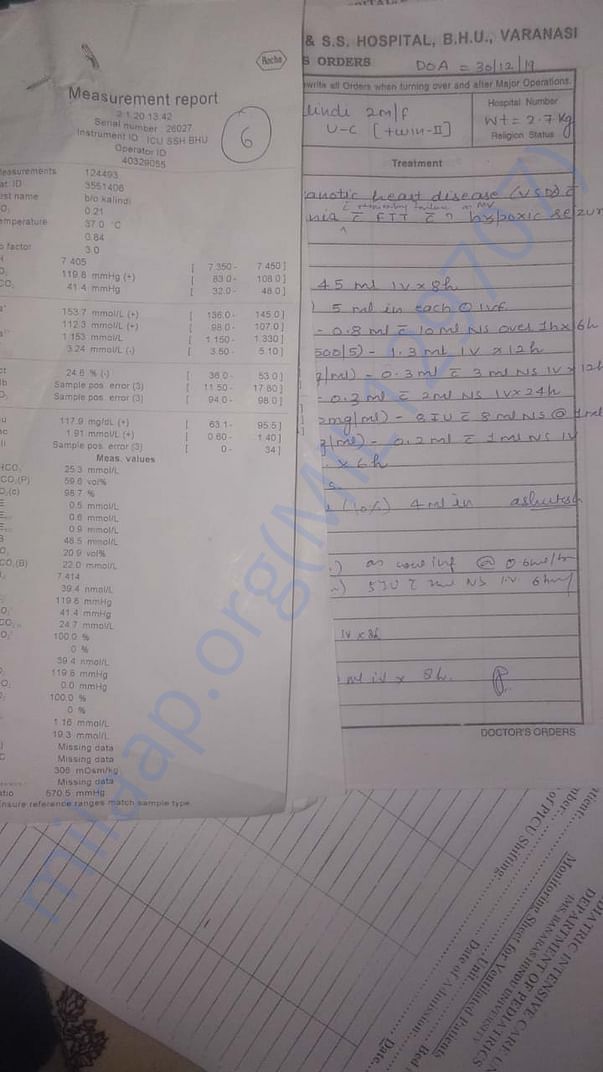 & S.S. HOSPITAL, B.H.U., VARANASI
S ORDERS DOA = 30/12/19
write all Orders when turning over and after Major Operations.
lindi 2m/F
U-C [twin-II]
Hospital Number
Wt = 2.7 kg
Religion Status
Treatment
anotic heart disease (VSD) c̄
c̄ FTT c̄ ? hypoxic seizur
45 ml IV x 8h
5 ml in each @ IVF
- 0.8 ml c̄ 10 ml NS over 1h x 6h
500/5) - 1.3 ml IV x 12h
/ml) - 0.3 ml c̄ 3 ml NS IV x 12h
- 0.3 ml c̄ 2ml NS IV x 24h
2mg/ml) - 8 IU c̄ 8 ml NS @ 1 ml
/ml) - 0.2 ml c̄ 1 ml NS IV
x 6h
(10%) 4 ml in
IV x 8h
ml iv x 8h.
DOCTOR'S ORDERS
Roche
Measurement report
2.1.20 13:42
Serial number 26027
Instrument ID ICU SSH BHU
Operator ID
40329055
6
easurements 124493
at. ID 3551406
est name b/o kalindi
O₂ 0.21
emperature 37.0 °C
0.84
o factor 3.0
H 7.405 [ 7.350 - 7.450 ]
O₂ 119.8 mmHg (+) [ 83.0 - 108.0 ]
CO₂ 41.4 mmHg [ 32.0 - 48.0 ]
153.7 mmol/L (+) [ 136.0 - 145.0 ]
112.3 mmol/L (+) [ 98.0 - 107.0 ]
1.153 mmol/L [ 1.150 - 1.330 ]
3.24 mmol/L (-) [ 3.50 - 5.10 ]
ct 24.6 % (-) [ 36.0 - 53.0 ]
Hb Sample pos. error (3) [ 11.50 - 17.80 ]
O₂ Sample pos. error (3) [ 94.0 - 98.0 ]
lu 117.9 mg/dL (+) [ 63.1 - 95.5 ]
ac 1.91 mmol/L (+) [ 0.60 - 1.40 ]
ili Sample pos. error (3) [ 0 - 34 ]
Meas. values
HCO₃ 25.3 mmol/L
CO₂(P) 59.6 vol%
O₂(c) 98.7 %
0.5 mmol/L
0.6 mmol/L
0.9 mmol/L
B 48.5 mmol/L
20.9 vol%
CO₂(B) 22.0 mmol/L
7.414
39.4 nmol/L
119.8 mmHg
41.4 mmHg
24.7 mmol/L
100.0 %
0 %
39.4 nmol/L
119.8 mmHg
0.0 mmHg
100.0 %
0 %
1.16 mmol/L
19.3 mmol/L
Missing data
Missing data
306 mOsm/kg
Missing data
atio 570.5 mmHg
Ensure reference ranges match sample type.
DIATRIC INTENSIVE CARE UN
DEPARTMENT OF PEDIATRICS
IMS, BANARAS HINDU UNIVERSITY
Monitoring Sheet for Ventilated Patients
Unit Bed
Date of Admission Date
atient:
mber:
of PICU Shifting
milaap.org